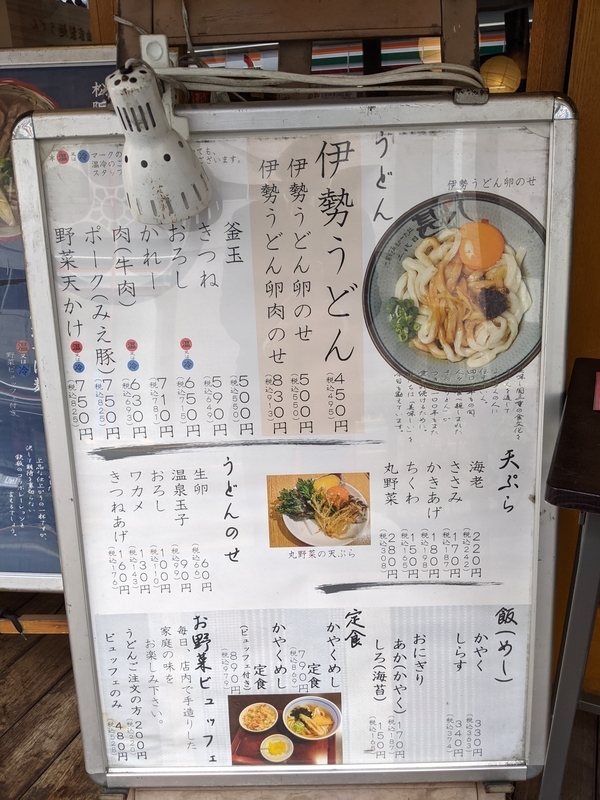 うどん
伊勢うどん 450円(税込495)
伊勢うどん卵のせ 500円(税込550)
伊勢うどん卵肉のせ 830円(税込913)
釜玉 500円(税込550)
きつね 590円(税込649)
おろし 温又は冷 650円
かれー 710円(税込781)
肉(牛肉) 温又は冷 630円(税込693)
ポーク(みえ豚) 750円(税込825)
野菜天かけ 温又は冷 750円(税込825)
伊勢うどん卵のせ
天ぷら
海老 220円(税込242)
ささみ 170円(税込187)
かきあげ 180円(税込198)
ちくわ 150円(税込165)
丸野菜 280円(税込308)
丸野菜の天ぷら
うどんのせ
生卵 60円(税込66)
温泉玉子 90円(税込99)
おろし 100円(税込110)
ワカメ 130円(税込143)
きつねあげ 160円(税込176)
飯(めし)
かやく 330円(税込363)
しらす 340円(税込374)
おにぎり
あか(かやく) 170円(税込187)
しろ(海苔) 150円(税込165)
定食
かやくめし定食 790円(税込869)
かやくめし定食
(ビュッフェ付き) 890円(税込979)
お野菜ビュッフェ
毎日、店内で手造りした
家庭の味を
お楽しみ下さい。
うどんご注文の方 200円(税込220)
ビュッフェのみ 480円(税込528)